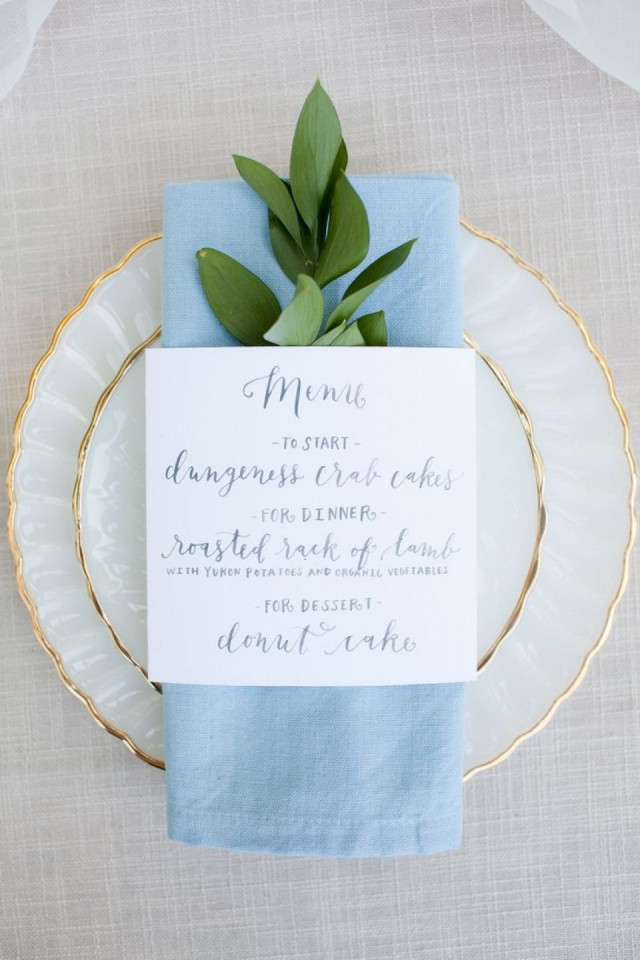 Menu
- TO START -
dungeness crab cakes
- FOR DINNER -
roasted rack of lamb
WITH YUKON POTATOES AND ORGANIC VEGETABLES
- FOR DESSERT -
donut cake